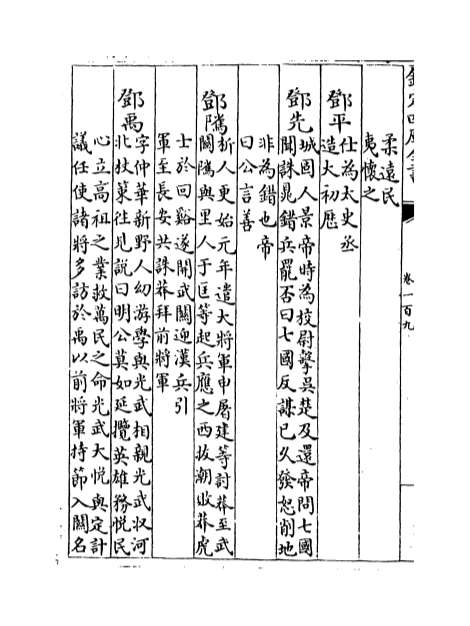 欽定四庫全書
卷一百九
柔遠民
夷懷之
鄧平
仕為太史丞
造大初厯
鄧先
城固人景帝時為校尉擊吳楚及還帝問七國
聞誅晁錯兵罷否曰七國反謀已久發怒削地
非為錯也帝
曰公言善
鄧隲
析人更始元年遣大將軍申屠建等討莽至武
關隲與里人于匡等起兵應之西拔潮收莽虎
士於回谿遂開武關迎漢兵引
軍至長安共誅莽拜前將軍
鄧禹
字仲華新野人幼游學與光武相親光武収河
北杖策往見說曰明公莫如延攬英雄務悅民
心立高祖之業救萬民之命光武大悅與定計
議任使諸將多訪於禹以前將軍持節入關名